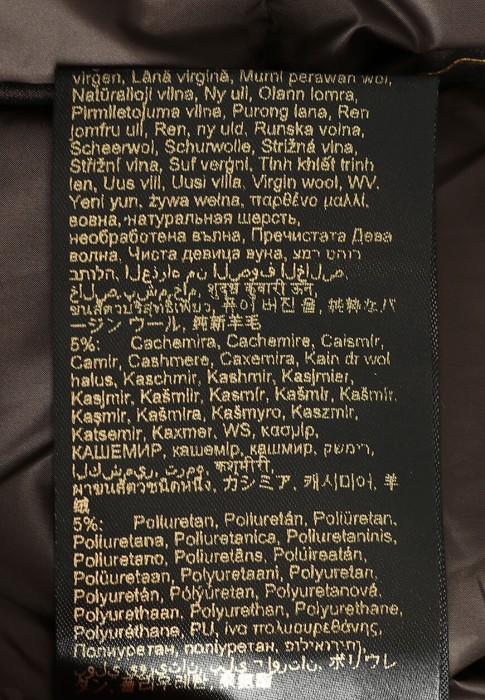 virgen, Lână virgină, Murni perawan wol,
Natūralioji vilna, Ny ull, Olann lomra,
Pirmlietojuma vilna, Purong lana, Ren
lomfru ull, Ren, ny uld, Runska volna,
Scheerwol, Schurwolle, Strižná vlna,
Střižní vlna, Suf verġni, Tinh khiết trinh
len, Uus vill, Uusi villa, Virgin wool, WV,
Yeni yun, żywa wełna, παρθένο μαλλί,
вовна, натуральная шерсть,
необработена вълна, Пречистата Дева
волна, Чиста девица вуна,
शुद्ध कुंवारी ऊन,
ージン ウール, 純新羊毛
5%: Cachemira, Cachemire, Caismír,
Camir, Cashmere, Caxemira, Kain dr wol
halus, Kaschmir, Kashmir, Kasjmier,
Kasjmir, Kašmiir, Kasmír, Kašmír, Kašmir,
Kaşmir, Kašmira, Kašmyro, Kaszmir,
Katsemir, Kaxmer, WS, κασμίρ,
КАШЕМИР, кашемір, кашмир,
कश्मीरी,
カシミア, 캐시미어, 羊
絨
5%: Poliuretan, Poliuretán, Poliüretan,
Poliuretana, Poliuretānica, Poliuretaninis,
Poliuretano, Poliuretāns, Polúireatán,
Polüuretaan, Polyuretaani, Polyuretan,
Polyuretán, Pólýúretan, Polyuretanová,
Polyurethaan, Polyurethan, Polyurethane,
Polyuréthane, PU, ίνα πολυουρεθάνης,
Полиуретан, поліуретан,
ポリウレ
タン,